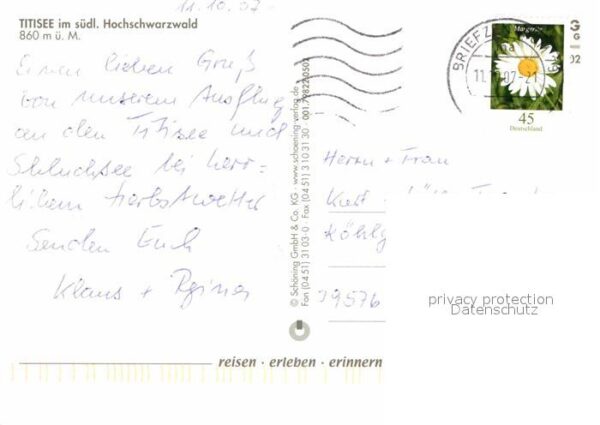 11.10.07-
TITISEE im südl. Hochschwarzwald
860 m ü. M.
Einen lieben Gruß
von unserem Ausflug
an den Titisee und
Schluchsee bei herr=
lichem Herbstwetter
Senden Euch
Klaus + Regina
© Schöning GmbH & Co. KG - www.schoening-verlag.de
Fon (04 51) 31 03-0 Fax (04 51) 3 10 31 30
BRIEFZ
11. 07-21
Margerite
45
Deutschland
G
G
02
Herrn + Frau
Kurt
39576
privacy protection
Datenschutz
reisen · erleben · erinnern